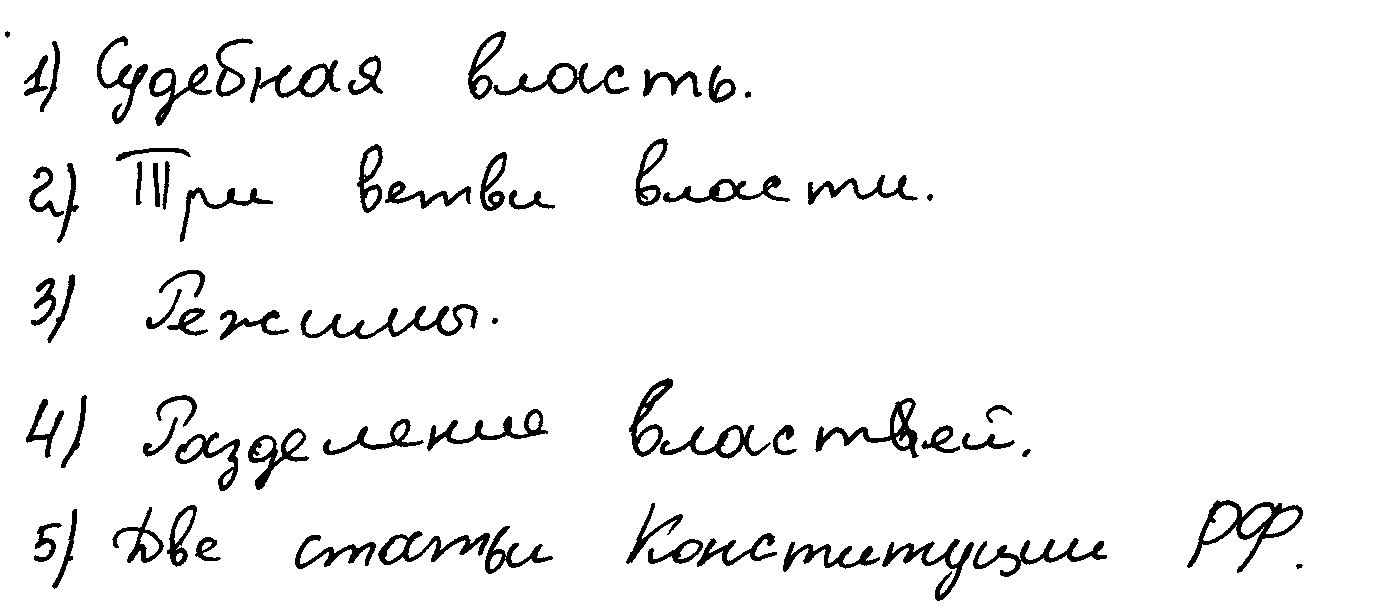 1) Судебная власть.
2) Три ветви власти.
3) Режимы.
4) Разделение властей.
5) Две статьи Конституции РФ.